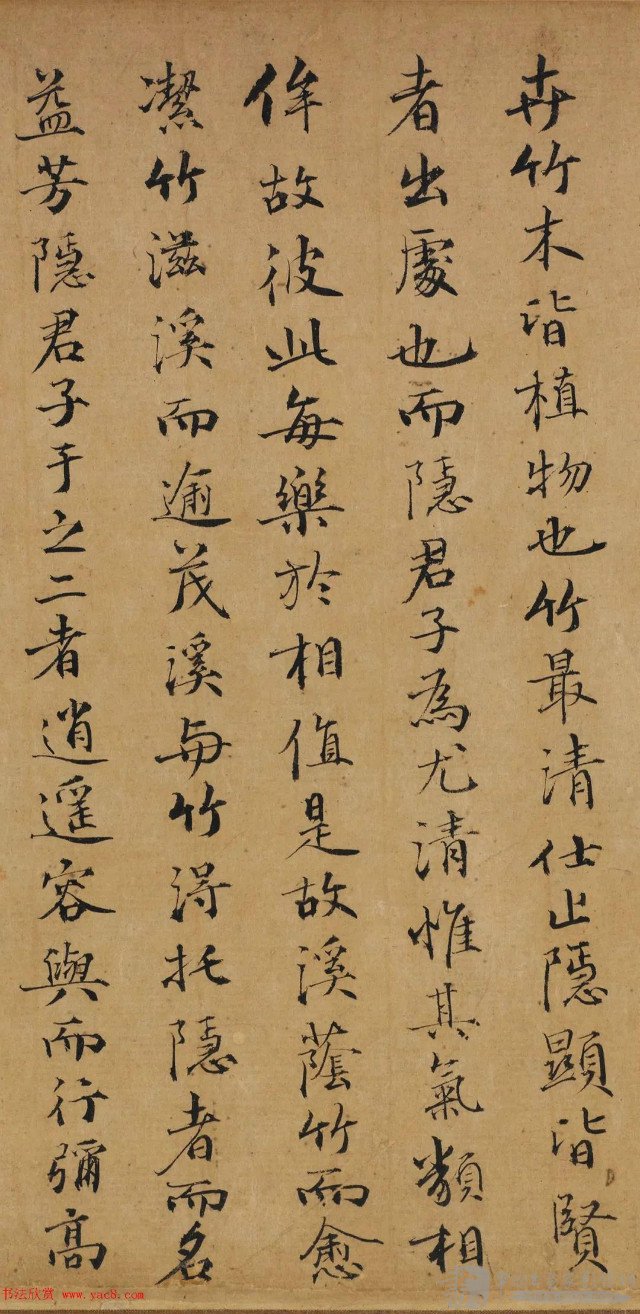 卉竹木皆植物也竹最清仕止隱顯皆賢
者出處也而隱君子為尤清惟其氣類相
侔故彼此每樂於相值是故溪蔭竹而愈
潔竹滋溪而逾茂溪与竹得托隱者而名
益芳隱君子于之二者逍遥容與而行彌高
书法欣赏 www.yac8.com